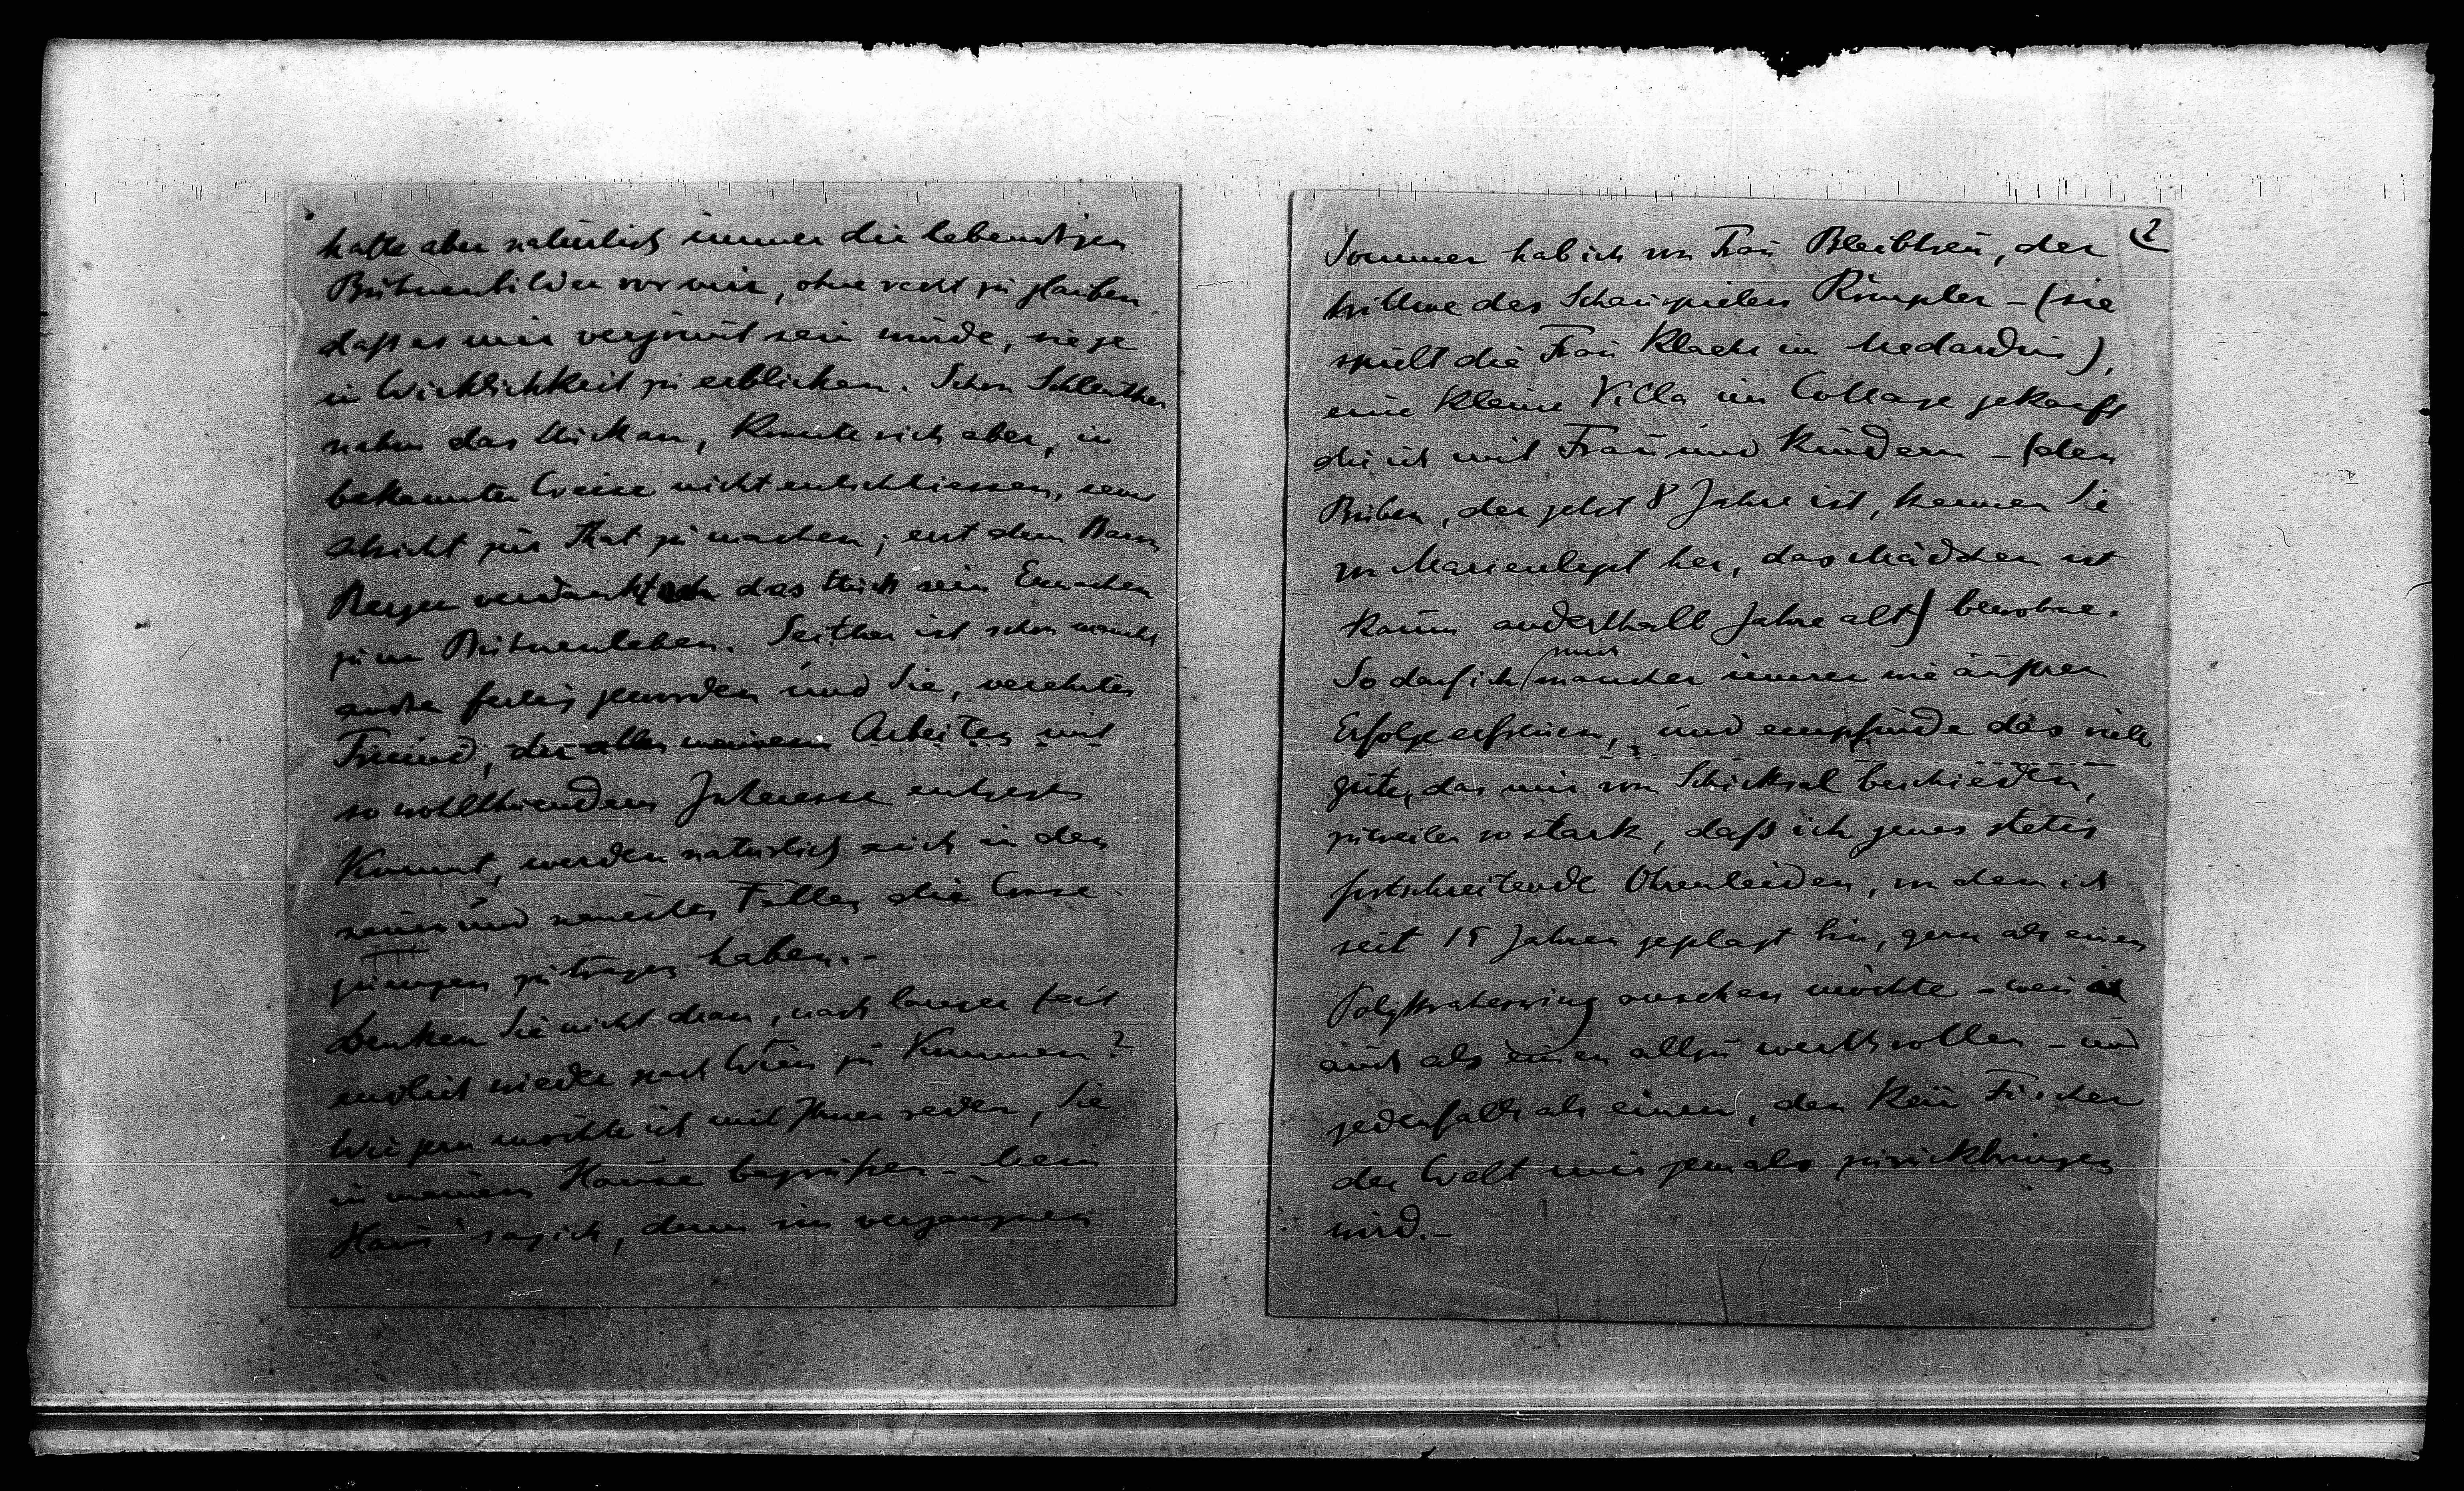 hatte aber natürlich immer die lebendigen
Bühnenbilder vor mir, ohne recht zu glauben
daß es mir vergönnt sein würde, sie je
in Wirklichkeit zu erblicken. Schon Schlenther
nahm das Stück an, konnte sich aber, in
bekannter Weise nicht entschliessen, seine
Absicht zur That zu machen; erst dem Baron
Berger verdankt das Stück sein Erwachen
zum Bühnenleben. Seither ist schon manches
andre fertig geworden und Sie, verehrter
Freund, der allen meinen Arbeiten mit
so wohlthuendem Interesse entgegen
kommt, werden natürlich auch in den
neuen und neuesten Fällen die Conse-
quenzen zu tragen haben.–
Denken Sie nicht dran, nach langer Zeit
endlich wieder nach Wien zu kommen?
Wie gern möchte ich mit Ihnen reden, Sie
in meinem Hause begrüßen – Mein
Haus sag ich, denn im vergangnen
2
Sommer hab ich von Frau Bleibtreu, der
Wittwe des Schauspielers Römpler – (sie
spielt die Frau Klaehr im Medardus),
eine kleine Villa im Cottage gekauft
die ich mit Frau und Kindern – (den
Buben, der jetzt 8 Jahre ist, kennen Sie
von Marienlyst her, das Mädchen ist
kaum anderthalb Jahre alt) bewohne.
So darf ich mich mancher innrer wie äußrer
Erfolge erfreuen, und empfinde das viele
gute, das mir vom Schicksal beschieden,
zuweilen so stark, daß ich jenes stetig
fortschreitende Ohrenleiden, von dem ich
seit 15 Jahren geplagt bin, gern als einen
Polykratesring ansehen möchte – wenn
auch als einen allzu werthvollen – und
jedenfalls als einen, den kein Fischer
der Welt mir jemals zurückbringen
wird.–